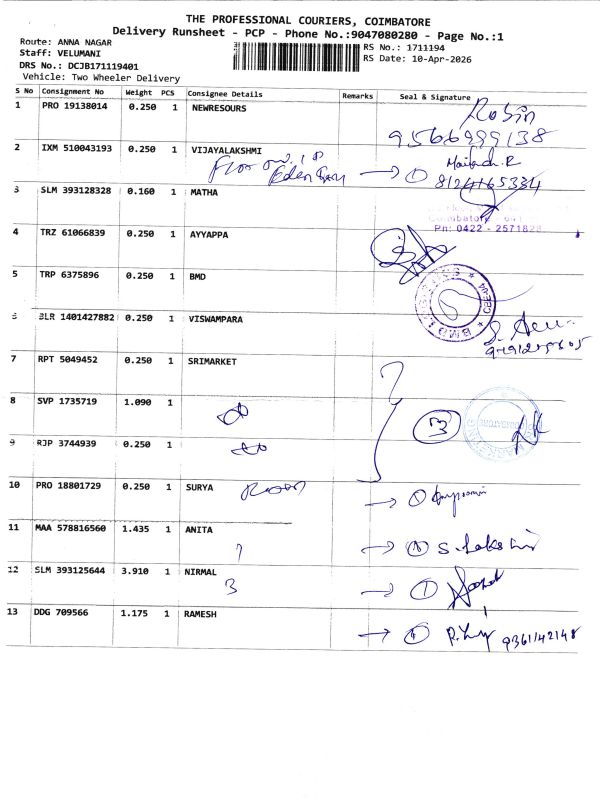 THE PROFESSIONAL COURIERS, COIMBATORE
Delivery Runsheet - PCP - Phone No.:9047080280 - Page No.:1
Route: ANNA NAGAR
RS No.: 1711194
Staff: VELUMANI
RS Date: 10-Apr-2026
DRS No.: DCJB171119401
Vehicle: Two Wheeler Delivery
S No Consignment No Weight PCS Consignee Details Remarks Seal & Signature
1 PRO 19138014 0.250 1 NEWRESOURS Robin
9566999138
2 IXM 510043193 0.250 1 VIJAYALAKSHMI
1
8124165334
3 SLM 393128328 0.160 1 MATHA
Coimbatore
Ph: 0422 - 2571828
4 TRZ 61066839 0.250 1 AYYAPPA
5 TRP 6375896 0.250 1 BMD
6 BLR 1401427882 0.250 1 VISWAMPARA
7 RPT 5049452 0.250 1 SRIMARKET
8 SVP 1735719 1.090 1
3
9 RJP 3744939 0.250 1
10 PRO 18801729 0.250 1 SURYA
11 MAA 578816560 1.435 1 ANITA S. Lakshmi
12 SLM 393125644 3.910 1 NIRMAL
3
1
13 DDG 709566 1.175 1 RAMESH
9361142148